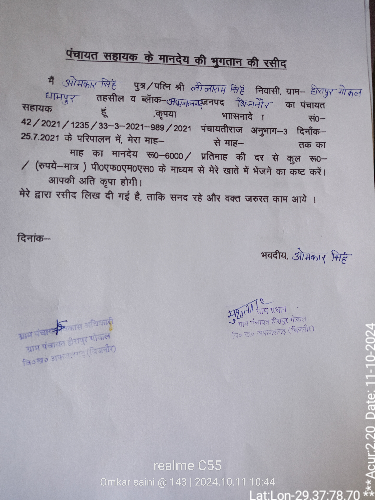 पंचायत सहायक के मानदेय की भुगतान की रसीद
मैं ओमकार सिंह पुत्र/पत्नि श्री सिंह निवासी, ग्राम- हीरापुर गोकल
धामपुर तहसील व ब्लाक- जनपद बिजनौर का पंचायत
सहायक हूं .कृपया भाासनादे । स०-
42/2021/1235/33-3-2021-989/2021 पंचायतीराज अनुभाग-3 दिनॉक-
25.7.2021 के परिपालन में, मेरा माह- से माह- तक का
माह का मानदेय रू०-6000/ प्रतिमाह की दर से कुल रू०-
/ (रुपये-मात्र ) पी०एफ०एम०एस० के माध्यम से मेरे खाते में भेजने का कष्ट करें।
आपकी अति कृपा होगी।
मेरे द्वारा रसीद लिख दी गई है, ताकि सनद रहे और वक्त जरुरत काम आये ।
दिनांक-
भवदीय. ओमकार सिंह
ग्राम पंचायत
realme C55
Omkar saini @ 143 | 2024.10.11 10:44
Lat:Lon-29.37:78.70 ***Acur:2.20 Date: 11-10-2024